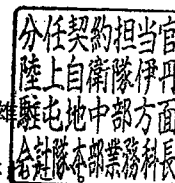 分任契約担当官
陸上自衛隊伊丹
雄駐屯地中部方面
会計隊本部業務科長